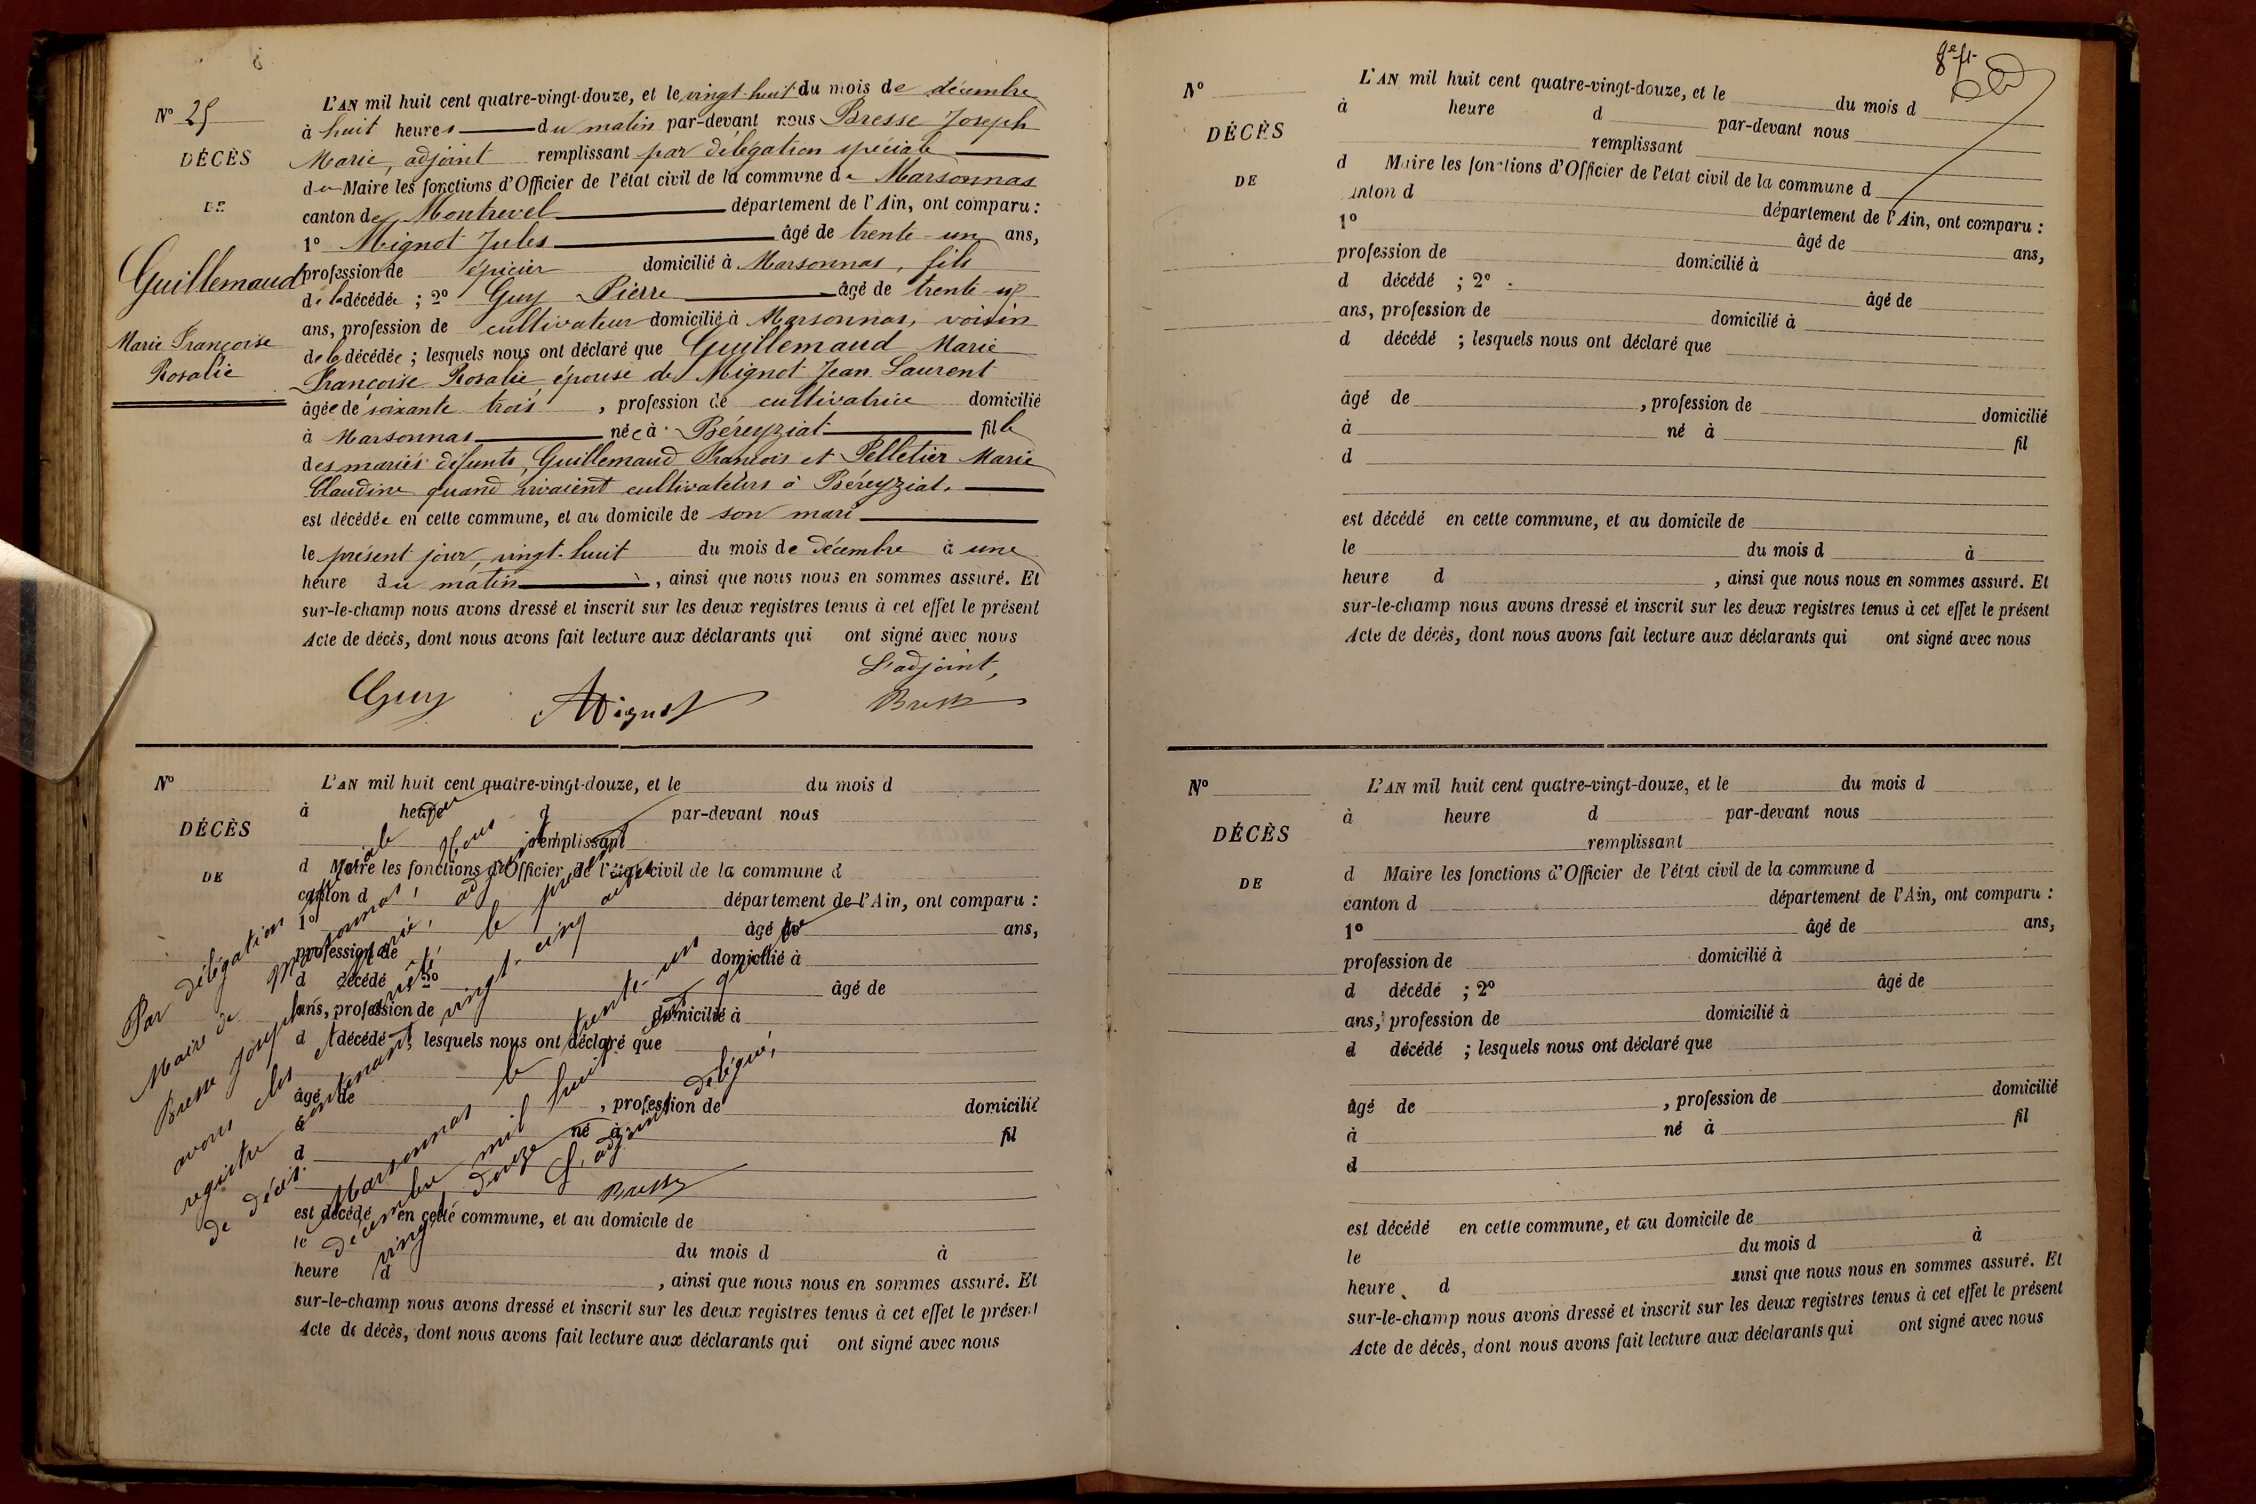 N° 25
DÉCÈS
DE
Guillemaud
Marie Françoise
Rosalie
L'AN mil huit cent quatre-vingt-douze, et le vingt-huit du mois de décembre
à huit heures du matin par-devant nous Bresse Joseph
Marie, adjoint remplissant par délégation spéciale
du Maire les fonctions d'Officier de l'état civil de la commune de Marsonnas
canton de Montrevel département de l'Ain, ont comparu :
1° Mignot Jules âgé de trente-un ans,
profession de épicier domicilié à Marsonnas, fils
de la décédée ; 2° Guy Pierre âgé de trente-un
ans, profession de cultivateur domicilié à Marsonnas, voisin
de la décédée ; lesquels nous ont déclaré que Guillemaud Marie
Françoise Rosalie épouse de Mignot Jean Laurent
âgée de soixante trois, profession de cultivatrice domicilié
à Marsonnas née à Béreyziat fille
des mariés défunts, Guillemaud François et Pelletier Marie
Claudine quand vivaient cultivateurs à Béreyziat.
est décédée en cette commune, et au domicile de son mari
le présent jour, vingt-huit du mois de décembre à une
heure du matin, ainsi que nous nous en sommes assuré. Et
sur-le-champ nous avons dressé et inscrit sur les deux registres tenus à cet effet le présent
Acte de décès, dont nous avons fait lecture aux déclarants qui ont signé avec nous
L'adjoint,
Guy Mignot Bresse
N°
DÉCÈS
DE
L'AN mil huit cent quatre-vingt-douze, et le du mois d
à heure d par-devant nous
remplissant
d Maire les fonctions d'Officier de l'état civil de la commune d
canton d département de l'Ain, ont comparu :
1° âgé de ans,
profession de domicilié à
d décédé 2° âgé de
ans, profession de domicilié à
d décédé ; lesquels nous ont déclaré que
âgé de , profession de domicilié
à né à fil
d
est décédé en cette commune, et au domicile de
le du mois d à
heure d , ainsi que nous nous en sommes assuré. Et
sur-le-champ nous avons dressé et inscrit sur les deux registres tenus à cet effet le présent
Acte de décès, dont nous avons fait lecture aux déclarants qui ont signé avec nous
Par délégation spéciale du
Maire de Marsonnas, Nous
Bresse Joseph Marie, adjoint
avons clos et arrêté le présent
registre contenant vingt-cinq actes
de décès.
Marsonnas le trente-un
décembre mil huit cent quatre
vingt douze
L'adjoint délégué,
Bresse
N°
DÉCÈS
DE
L'AN mil huit cent quatre-vingt-douze, et le du mois d
à heure d par-devant nous
remplissant
d Maire les fonctions d'Officier de l'état civil de la commune d
anton d département de l'Ain, ont comparu :
1° âgé de ans,
profession de domicilié à
d décédé ; 2° âgé de
ans, profession de domicilié à
d décédé ; lesquels nous ont déclaré que
âgé de , profession de domicilié
à né à fil
d
est décédé en cette commune, et au domicile de
le du mois d à
heure d , ainsi que nous nous en sommes assuré. Et
sur-le-champ nous avons dressé et inscrit sur les deux registres tenus à cet effet le présent
Acte de décès, dont nous avons fait lecture aux déclarants qui ont signé avec nous
N°
DÉCÈS
DE
L'AN mil huit cent quatre-vingt-douze, et le du mois d
à heure d par-devant nous
remplissant
d Maire les fonctions d'Officier de l'état civil de la commune d
canton d département de l'Ain, ont comparu :
1° âgé de ans,
profession de domicilié à
d décédé ; 2° âgé de
ans, profession de domicilié à
d décédé ; lesquels nous ont déclaré que
âgé de , profession de domicilié
à né à fil
d
est décédé en cette commune, et au domicile de
le du mois d à
heure d ainsi que nous nous en sommes assuré. Et
sur-le-champ nous avons dressé et inscrit sur les deux registres tenus à cet effet le présent
Acte de décès, dont nous avons fait lecture aux déclarants qui ont signé avec nous